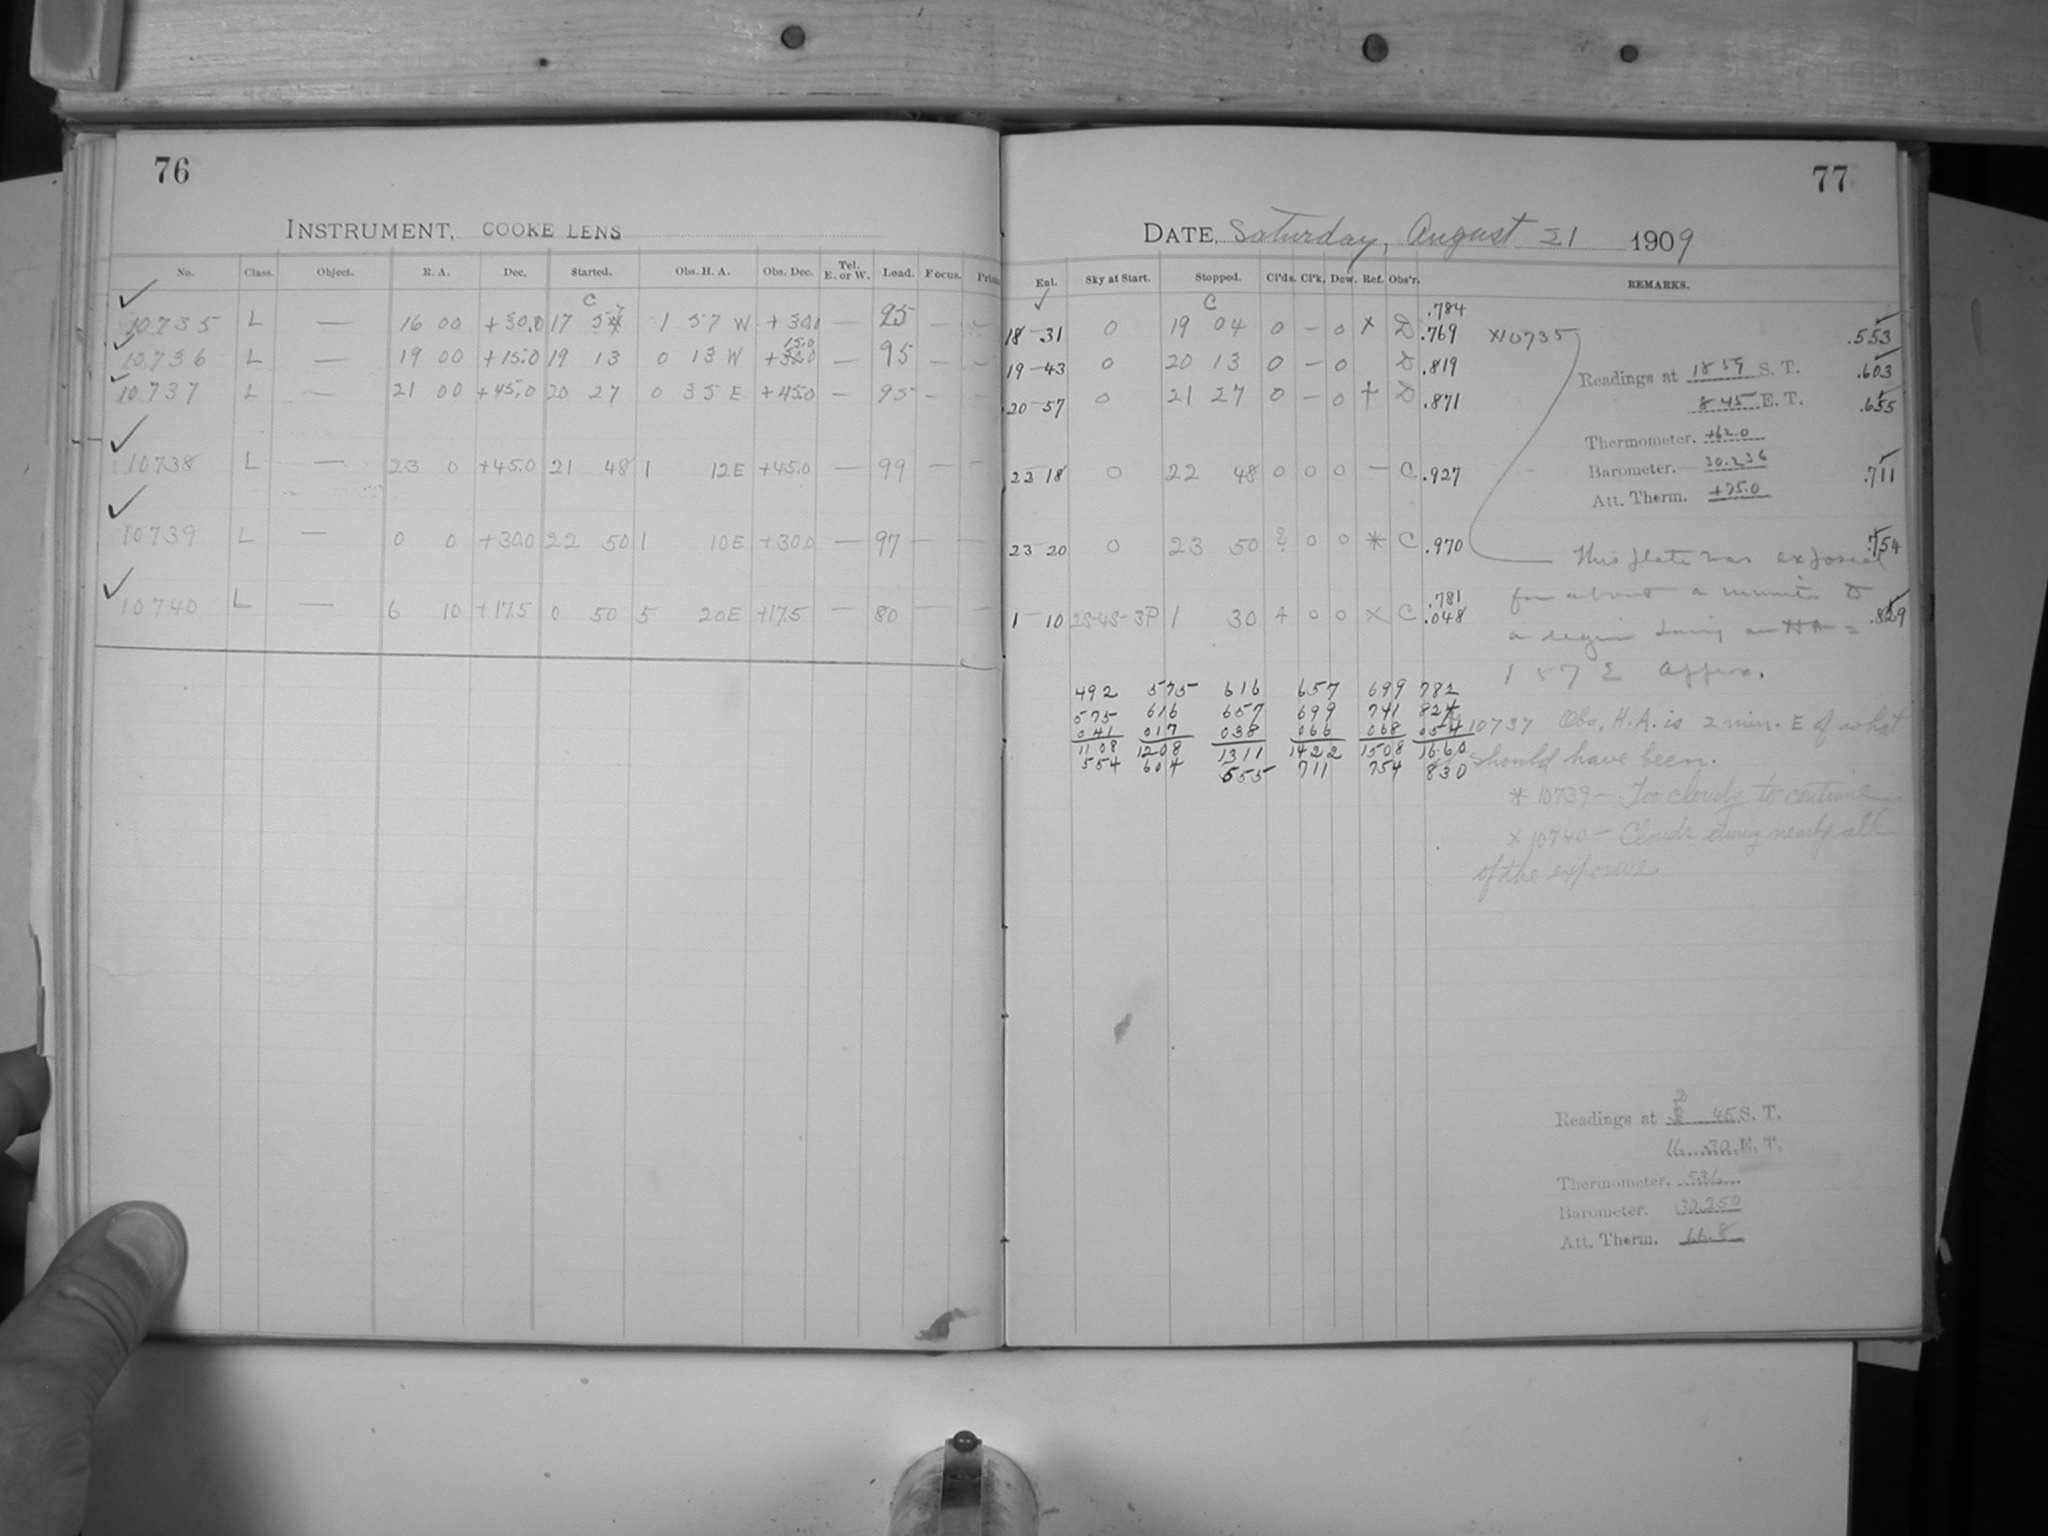 76
INSTRUMENT, COOKE LENS
No. Class. Object. R. A. Dec. Started. Obs. H. A. Obs. Dec. Tel. E. or W. Lead. Focus.
C
10735 L — 16 00 +30.0 17 57 1 57 W +30.0 — 95 — —
15.0
10736 L — 19 00 +15.0 19 13 0 13 W — 95 — —
10737 L — 21 00 +45.0 20 27 0 35 E +45.0 — 95 — —
10738 L — 23 0 +45.0 21 48 1 12E +45.0 — 99 — —
10739 L — 0 0 +30.0 22 50 1 10E +30.0 — 97 — —
10740 L — 6 10 +17.5 0 50 5 20E +17.5 — 80 — —
77
DATE, Saturday, August 21 1909
Ent. Sky at Start. Stopped. Cl'ds. Cl'k. Dew. Ref. Obs'r. REMARKS.
✓ C .784
18 31 0 19 04 0 — 0 X D .769 X10735 .553
19 43 0 20 13 0 — 0 D .819 .603
20 57 0 21 27 0 — 0 † D .871 .655
22 18 0 22 48 0 0 0 — C .927 .711
23 20 0 23 50 0 0 * C .970 .754
.781
1 10 2S-4S-3P 1 30 0 0 X C .048 .829
Readings at 18 59 S. T.
8 45 E. T.
Thermometer. +62.0
Barometer. 30.236
Att. Therm. +75.0
This plate was exposed
for about a minute to
a region having an HA =
1 57 E approx.
492 575 616 657 699 782
575 616 657 699 741 824
041 017 038 066 068 054
1108 1208 1311 1422 1508 1660
554 604 655 711 754 830
10737 Obs. H.A. is 2 min. E of what
should have been.
* 10739 — Too cloudy to continue
X 10740 — Clouds during nearly all
of the exposure
Readings at 45 S. T.
16 30 E. T.
Thermometer. 53.6
Barometer. 30.250
Att. Therm. 66.8